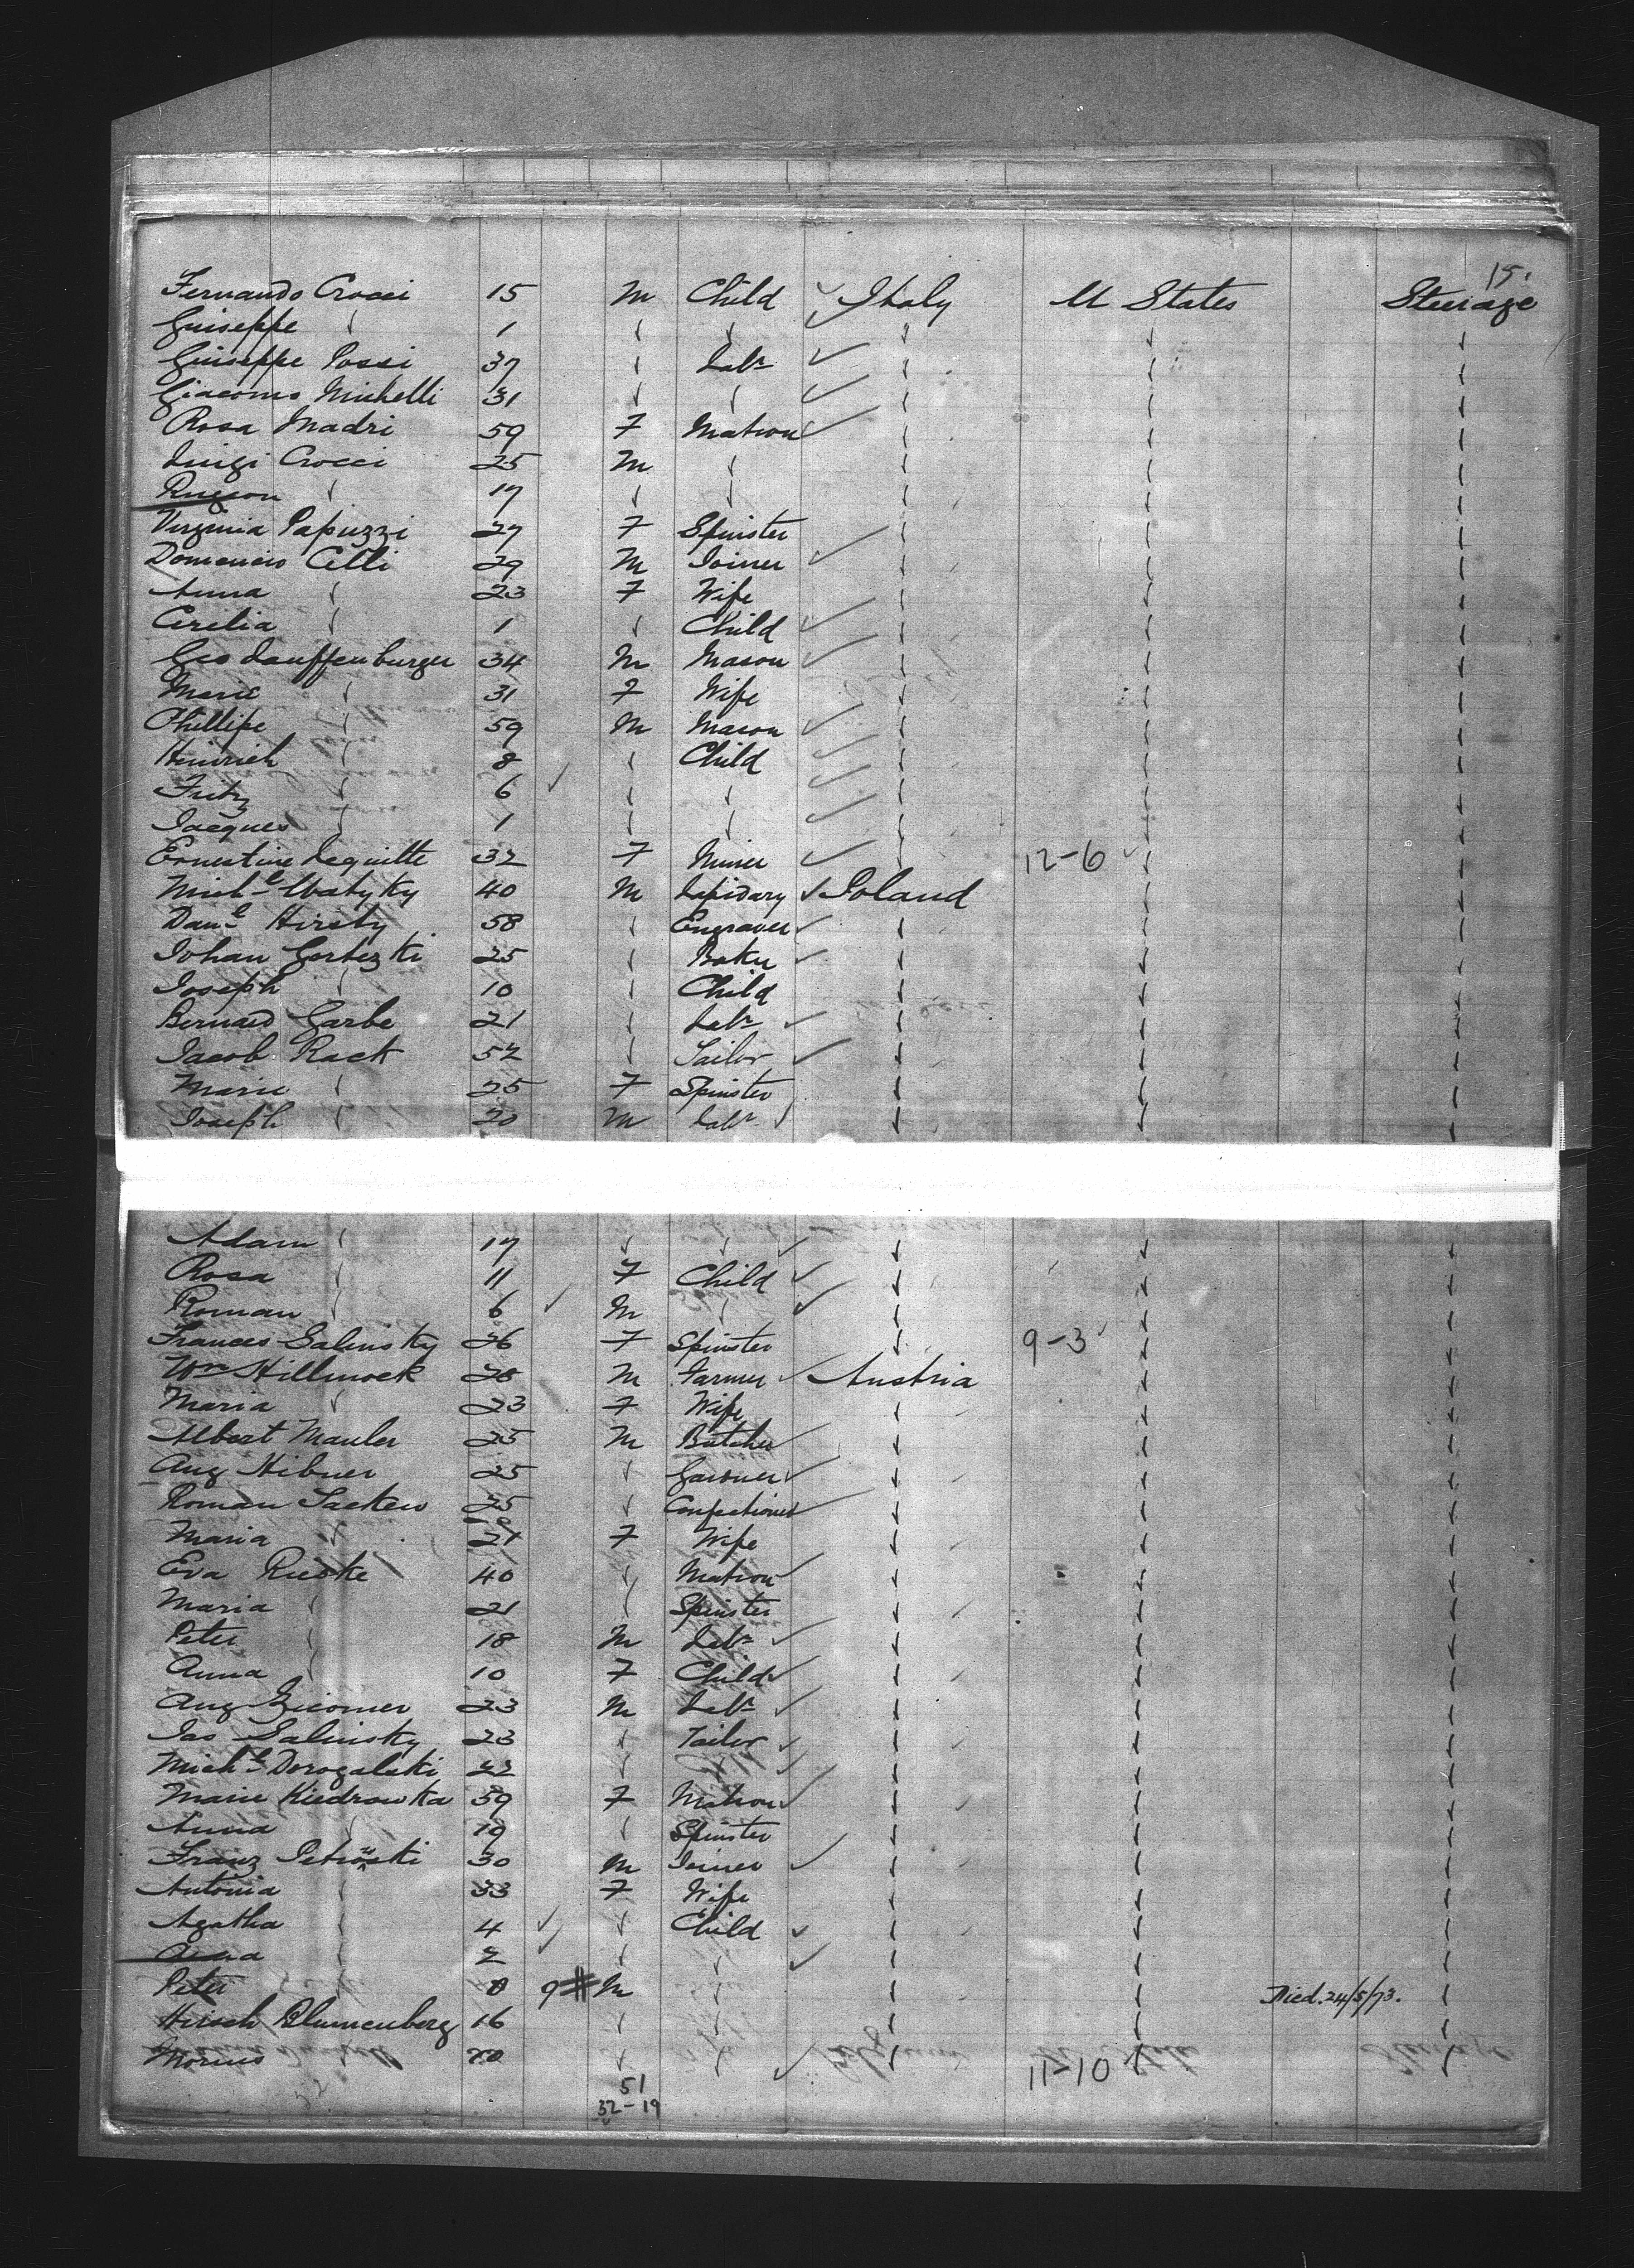 15.
Fernando Crocci 15 M Child ✓ Italy U States Steerage
Guiseppe " 1 " " ✓ " " "
Guiseppe Possi 37 " Labr ✓ " " "
Giacomo Michelli 31 " " ✓ " " "
Rosa Madri 59 F Matron ✓ " " "
Luigi Crocci 25 M " " " "
" 17 " " " " "
Virginia Papuzzi 27 F Spinster " " "
Domenico Celli 29 M Joiner ✓ " " "
Anna " 23 F Wife " " "
Cecilia " 1 " Child ✓ " " "
Geo Lauffenburger 34 M Mason ✓ " " "
Marie " 31 F Wife " " "
Phillipe " 59 M Mason ✓ " " "
Heinrich " 8 " Child ✓ " " "
Fritz " 6 ✓ " " ✓ " " "
Jacques " 1 " " ✓ " " "
Ernestine Lequitte 32 F Miner ✓ " 12-6 " "
Michl 40 M Lapidary ✓ Poland " "
Danl Hirsty 58 " Engraver ✓ " " "
Johan Gortezki 25 " Baker ✓ " " "
Joseph " 10 " Child " " "
Bernard Garbe 21 " Labr ✓ " " "
Jacob Rack 52 " Tailor ✓ " " "
Marie " 25 F Spinster " " "
Joseph " 20 M Labr ✓ " " "
Adam " 17 " " ✓ " " "
Rosa " 11 F Child ✓ " " "
Roman " 6 ✓ M " ✓ " " "
Frances Salinsky 26 F Spinster " 9-3 " "
Wm Hillmock 28 M Farmer ✓ Austria " "
Maria " 23 F Wife " " "
Albert Mauler 25 M Butcher ✓ " " "
Aug Hibner 25 " Garoner ✓ " " "
Roman Sacken 25 " Confectioner ✓ " " "
Maria " 21 F Wife " " "
Eva 40 " Matron ✓ " " "
Maria " 21 " Spinster " " "
Peter " 18 M Labr ✓ " " "
Anna " 10 F Child ✓ " " "
Aug Ziconer 23 M Labr ✓ " " "
Jas Salinsky 23 " Tailor ✓ " " "
Michl Dorogalski 22 " " ✓ " " "
Marie Kiedrowka 59 F Matron ✓ " " "
Anna " 19 " Spinster " " "
Franz 30 M Joiner ✓ " " "
Antonia " 33 F Wife " " "
Agatha " 4 ✓ " Child ✓ " " "
Anna " 2 ✓ " " ✓ " " "
Peter " 0 9 M " " " Died. 24/5/73. "
Hirsch Blumenberg 16 " " " " "
Morius 20 " " ✓ " 11-10 " "
51
32-19